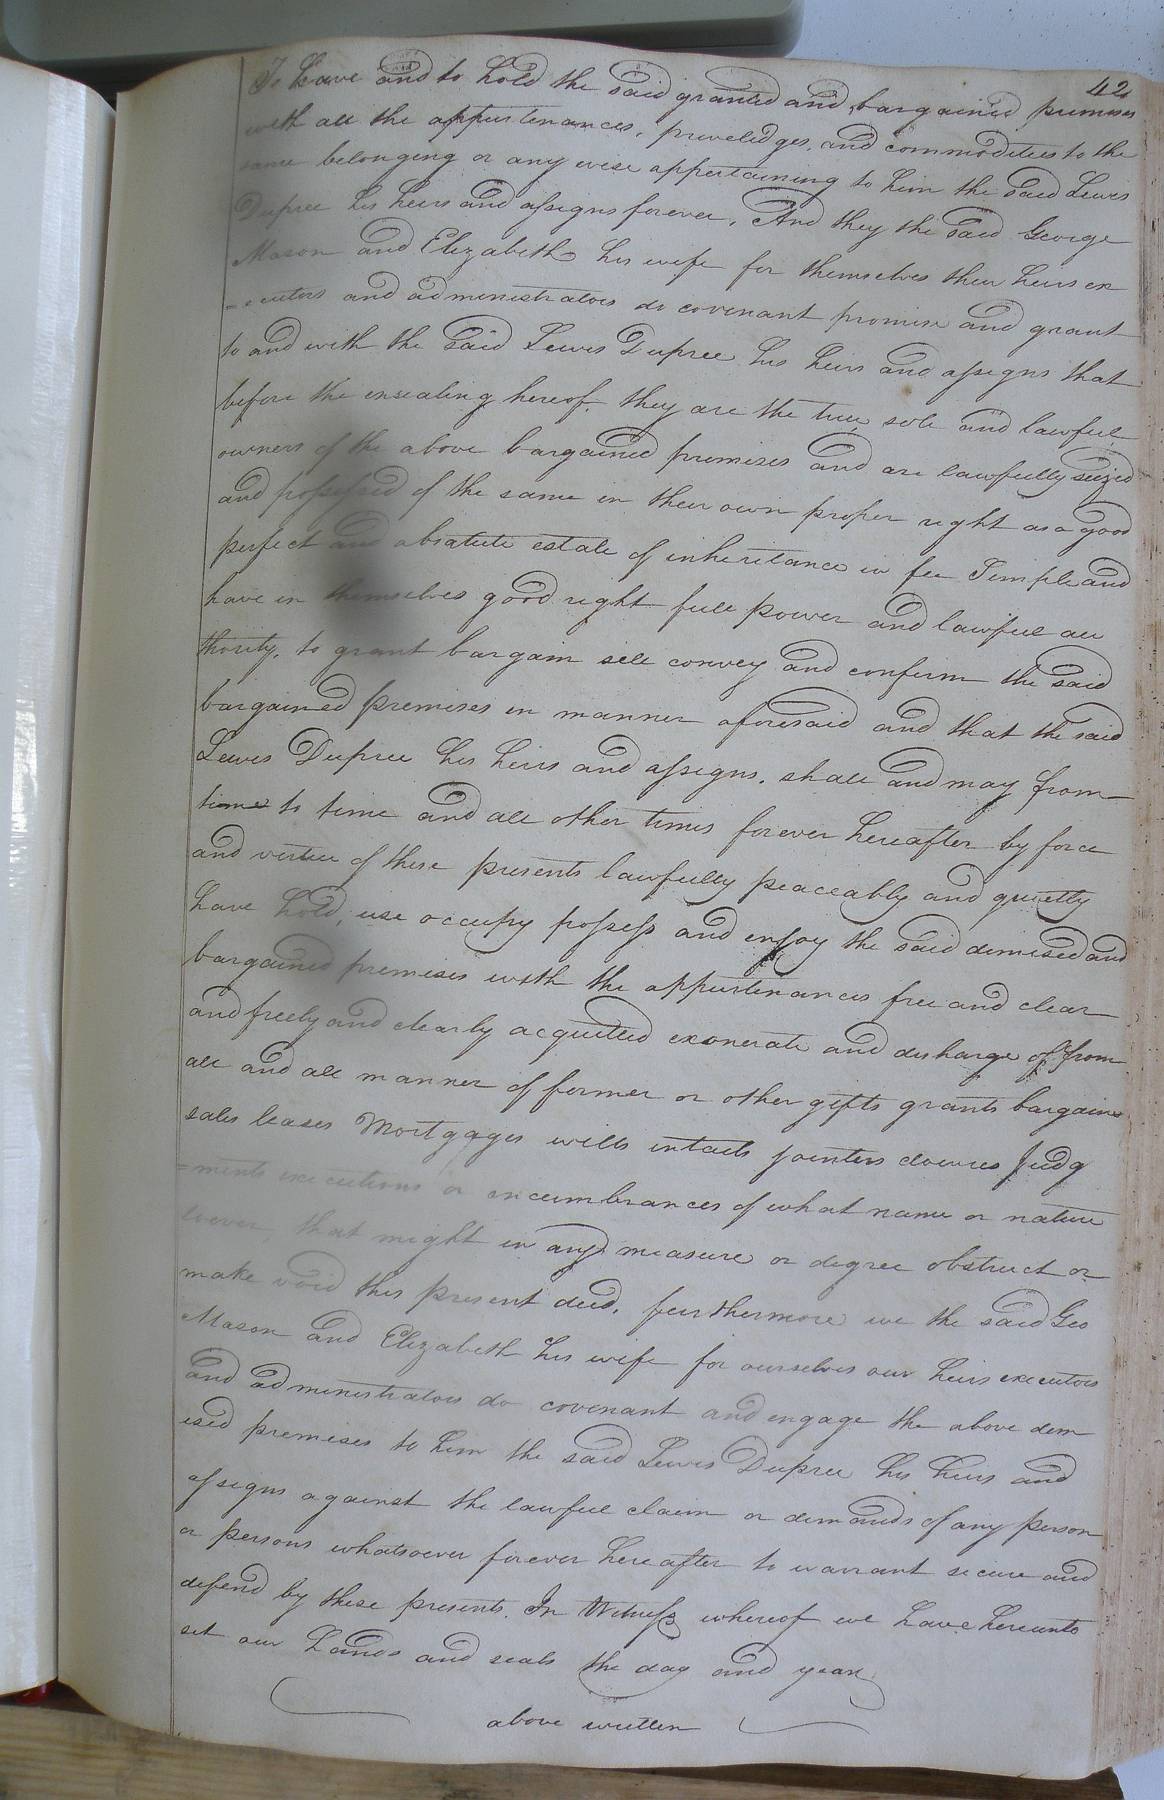 42
To have and to hold the said granted and bargained premises
with all the appurtenances, preveledges, and commodities to the
same belonging or any wise appertaining to him the said Lewis
Dupree his heirs and assigns forever, And they the said George
Mason and Elizabeth his wife for themselves their heirs ex
=ecutors and administrators do covenant promise and grant
to and with the said Lewis Dupree his heirs and assigns that
before the ensealing hereof they are the true, sole and lawful
owners of the above bargained premises and are lawfully seized
and possessed of the same in their own proper right as a good
perfect and absolute estate of inheritance in fee Simple and
have in themselves good right full power and lawful au
thority, to grant bargain sell convey and confirm the said
bargained premises in manner aforesaid and that the said
Lewis Dupree his heirs and assigns. shall and may from
time to time and all other times forever hereafter by force
and vertue of these presents lawfully peaceably and quietly
have hold, use occupy possess and enjoy the said demised and
bargained premises with the appurtenances free and clear
and freely and clearly acquitted exonerate and disharge of from
all and all manner of former or other gifts grants bargains
sales leases Mortgages wills entails jointers dowres Judg
=ments executions or encumbrances of what name or nature
soever, that might in any measure or degree obstruct or
make void this present deed, furthermore we the said Geo
Mason and Elizabeth his wife for ourselves our heirs executors
and administrators do covenant and engage the above dem
ised premises to him the said Lewis Dupree his heirs and
assigns against the lawful claim or demands of any person
or persons whatsoever forever hereafter to warrant secure and
defend by these presents. In Witness whereof we have hereunto
set our hands and seals the day and year
above written